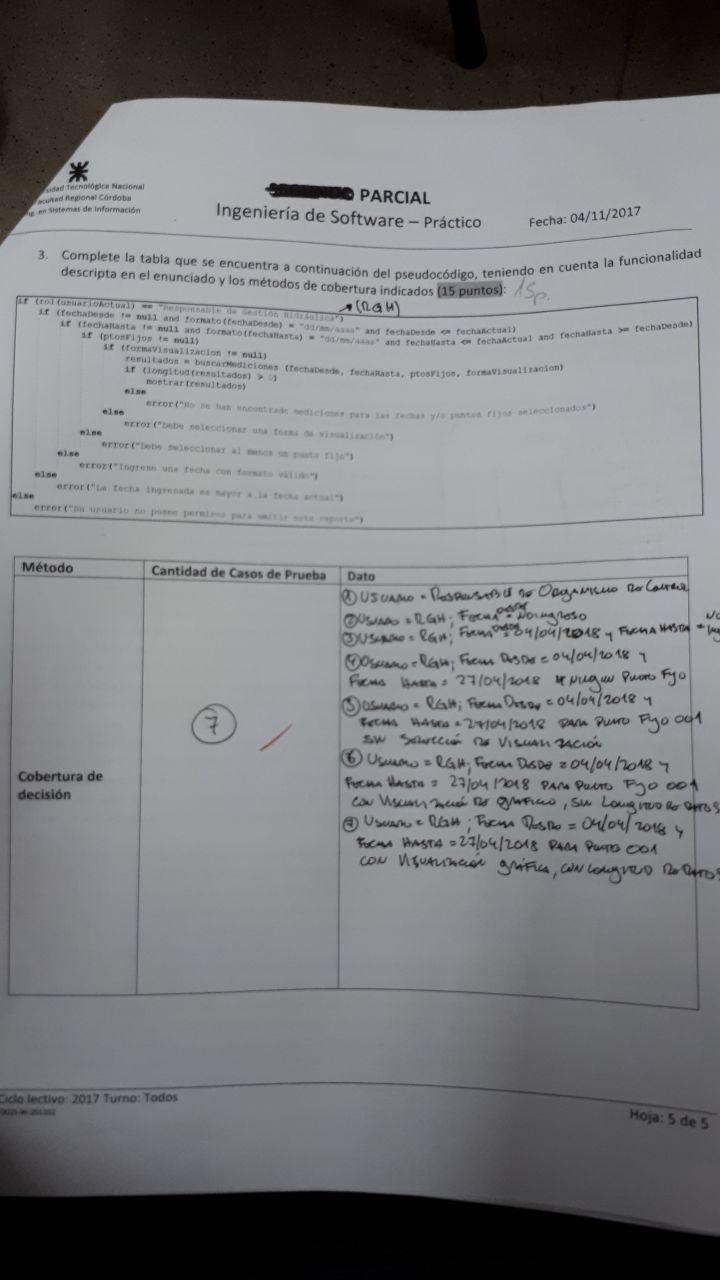 sidad Tecnológica Nacional
acultad Regional Córdoba
ng. en Sistemas de Información
PARCIAL
Ingeniería de Software – Práctico
Fecha: 04/11/2017
3. Complete la tabla que se encuentra a continuación del pseudocódigo, teniendo en cuenta la funcionalidad
descripta en el enunciado y los métodos de cobertura indicados (15 puntos): 15p.
(RGH)
if (rol(usuarioActual) == "Responsable de Gestión Hidráulica")
if (fechaDesde != null and formato(fechaDesde) = "dd/mm/aaaa" and fechaDesde <= fechaActual)
if (fechaHasta != null and formato(fechaHasta) = "dd/mm/aaaa" and fechaHasta <= fechaActual and fechaHasta >= fechaDesde)
if (ptosFijos != null)
if (formaVisualizacion != null)
resultados = buscarMediciones (fechaDesde, fechaHasta, ptosFijos, formaVisualizacion)
if (longitud(resultados) > 0)
mostrar(resultados)
else
error("No se han encontrado mediciones para las fechas y/o puntos fijos seleccionados")
else
error("Debe seleccionar una forma de visualización")
else
error("Debe seleccionar al menos un punto fijo")
else
error("Ingrese una fecha con formato válido")
else
error("La fecha ingresada es mayor a la fecha actual")
else
error("Su usuario no posee permisos para emitir este reporte")
Método
Cantidad de Casos de Prueba
Dato
Cobertura de
decisión
7
① USUARIO = RESPONSABLE DE ORGANISMO DE
② USUARIO = RGH; FECHA DESDE = NO INGRESO
③ USUARIO = RGH; FECHA DESDE = 04/04/2018 Y FECHA HASTA =
④ USUARIO = RGH; FECHA DESDE = 04/04/2018 Y
FECHA HASTA = 27/04/2018 NINGUN PUNTO FIJO
⑤ USUARIO = RGH; FECHA DESDE = 04/04/2018 Y
FECHA HASTA = 27/04/2018 PARA PUNTO FIJO 001
SIN SELECCIÓN DE VISUALIZACIÓN
⑥ USUARIO = RGH; FECHA DESDE = 04/04/2018 Y
FECHA HASTA = 27/04/2018 PARA PUNTO FIJO 001
CON VISUALIZACIÓN DE GRÁFICO, SIN LONGITUD DE DATOS
⑦ USUARIO = RGH; FECHA DESDE = 04/04/2018 Y
FECHA HASTA = 27/04/2018 PARA PUNTO 001
CON VISUALIZACIÓN GRÁFICA, CON LONGITUD DE DATOS
Ciclo lectivo: 2017 Turno: Todos
Hoja: 5 de 5